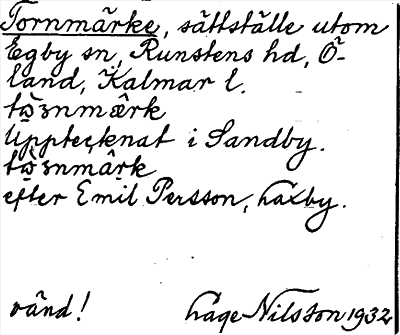 Tornmärke, sättställe utom
Egby sn, Runstens hd, Ö-
land, Kalmar l.
Upptecknat i Sandby.
efter Emil Persson, Laxby.
vänd! Lage Nilsson 1932